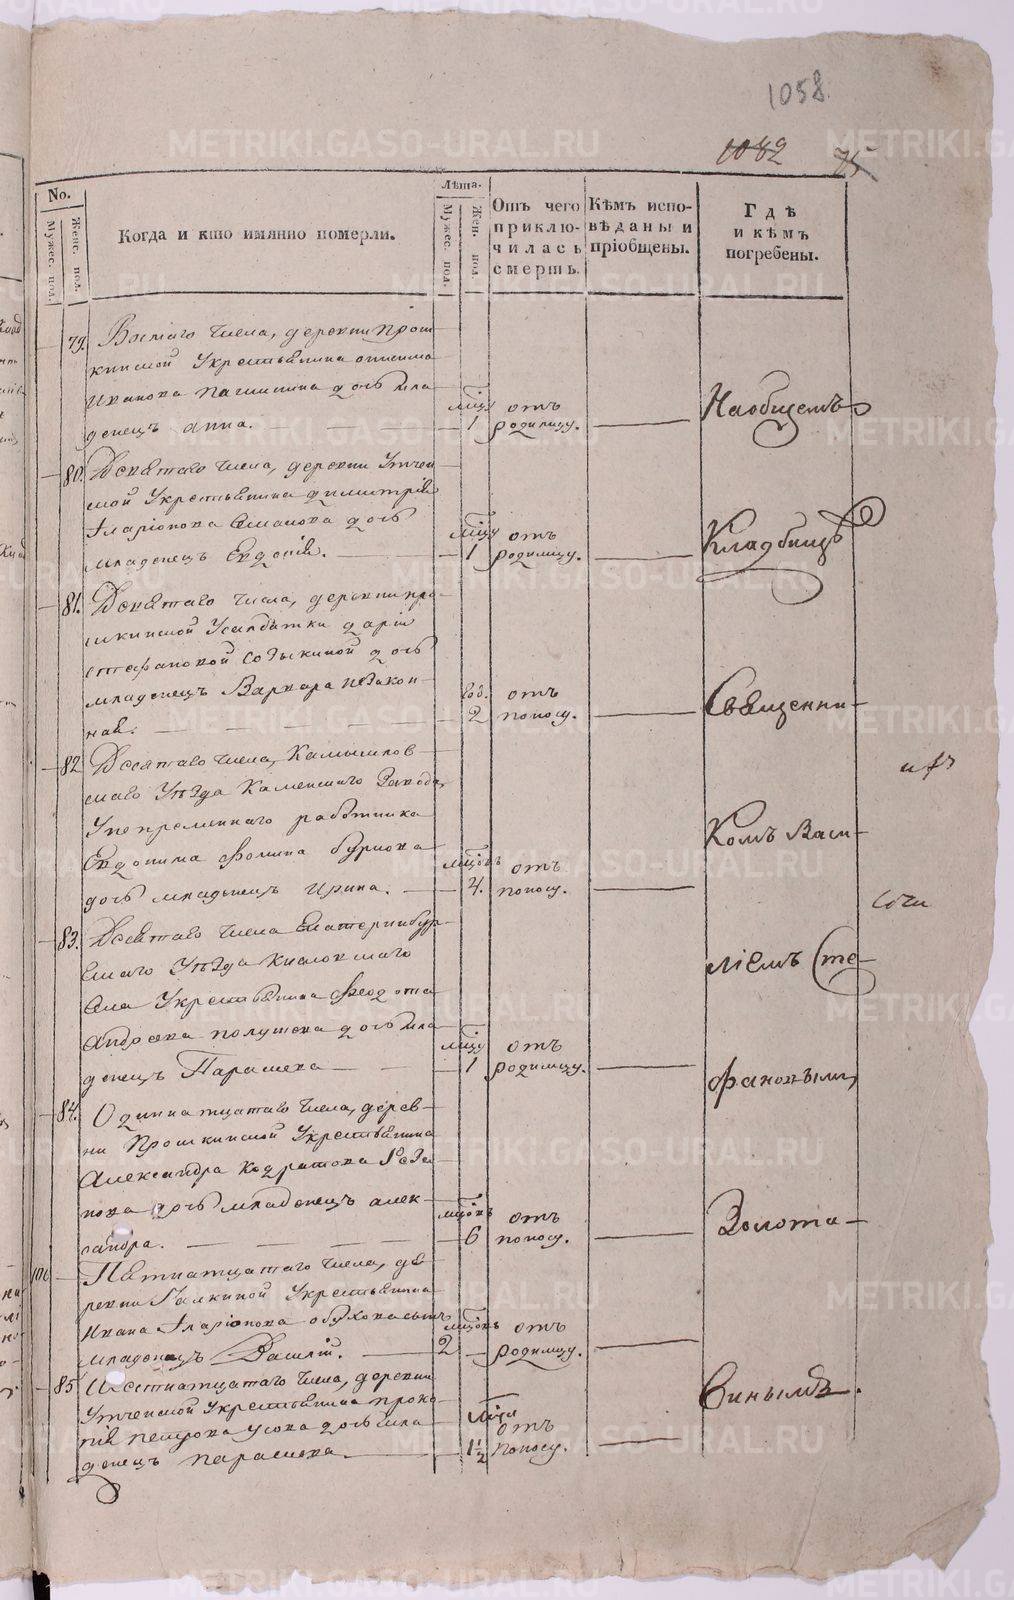 1058.
1082 75
No.
Мужес. пол.
Женс. пол.
Когда и кто имянно померли.
Лѣта.
Мужес. пол.
Жен. пол.
Отъ чего
приклю-
чилась
смерть.
Кѣмъ испо-
вѣданы и
пріобщены.
Гдѣ
и кѣмъ
погребены.
79. Восмаго числа, деревни Прош
кинской Укрестьянина
Иванова дочь мла
денецъ Анна.
мцу 1 отъ родимцу.
Наобщемъ
80. Девятаго числа, деревни Утчен
ской Укрестьянина Димитрія
Иларіонова дочь
младенецъ Евдокія.
мцу 1 отъ родимцу.
Кладбищѣ
81. Девятаго числа, деревни про
шкинской Усолдатки Даріи
Стефановой дочь
младенецъ Варвара незакон
ная.
год. 2 отъ поносу.
Священни-
82 Десятаго числа, Камышлов
скаго Уѣзда Каменскаго Завода,
Унепременнаго работника
Евдокима Фомина Бурнова
дочь младенецъ Ирина.
мцовъ 4. отъ поносу.
комъ Васи-
83. Десятаго числа Екатеринбур
скаго Уѣзда Кисловскаго
Села Укрестьянина Феодота
Андреева дочь мла
денецъ Парасковья
мцу 1 отъ родимцу.
ліемъ Сте-
фановымъ
84. Одиннатцатаго числа, дерев-
ни Прошкинской Укрестьянина
Александра Кодратова
нова дочь младенецъ Алек-
сандра.
мцовъ 6 отъ поносу.
Золота-
106 Пятнатцатаго числа, де
ревни Галкиной Укрестьянина
Ивана Иларіонова Обухова сынъ
младенецъ Василій.
мцовъ 2 отъ родимцу.
85 Шестнатцатаго числа, деревни
Утченской Укрестьянина Проко
пія Петрова Усова дочь мла
денецъ Парасковья.
мцa 1 1/2 отъ поносу.
Винымъ.